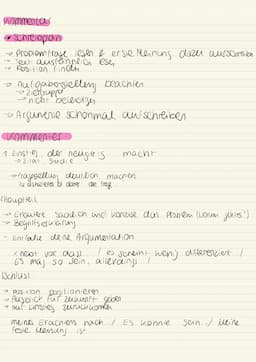 Kommentar
• Schreibplan
→ Problemfrage lesen & erste Meinung dazu aufschreiben
→ Text ausführlich lesen
→ Position finden
→ Aufgabenstellung beachten
→ Zielgruppe
→ nicht beleidigen
→ Argumente schonmal aufschreiben
Kommentar
1. Einstieg, der neugierig macht
→ Zitat, Studie
→ Fragestellung deutlich machen
Hauptteil
→ sachlich und das Problem (Worum geht es?)
→ Begriffserklärung
- deine Argumentation
/ es scheint wenig differenziert /
Es mag so sein, allerdings /
Schluss
→ Position positionieren
→ Ausblick für Zukunft geben
→ auf Einstieg zurückkommen
meines Erachtens nach / Es könnte sein / Meine
feste Meinung ist